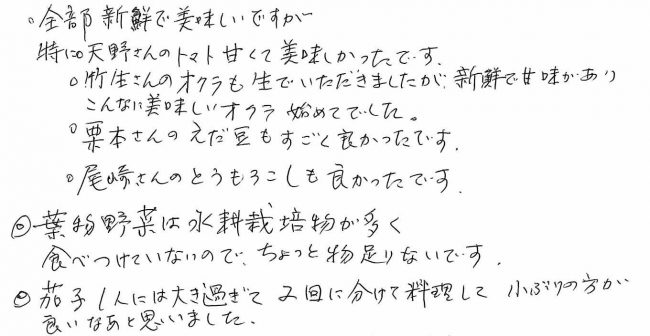 。全部新鮮で美味しいですが
特に天野さんのトマト甘くて美味しかったです.
。竹生さんのオクラも生でいただきましたが、新鮮で甘味があり
こんなに美味しいオクラ始めてでした。
。栗本さんのえだ豆もすごく良かったです.
。尾崎さんのとうもろこしも良かったです.
◎葉物野菜は水耕栽培物が多く
食べつけていないので、ちょっと物足りないです.
◎茄子1人には大き過ぎて2回に分けて料理して 小ぶりの方が
良いなあと思いました.